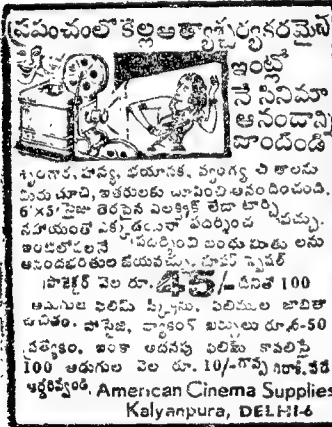 ప్రపంచంలో కెల్ల ఆత్యాశ్చర్యకరమైన
ఇంట్లో
నే సినిమా
ఆనందాన్ని
పొందండి
శృంగార, హాస్య, భయానక, వ్యంగ్య చి త్రాలను
మీరు చూచి, ఇతరులకు చూపించి ఆనందించండి.
6'×5' సైజు తెరపైన ఎలక్ట్రిక్ లేదా టార్చి
సహాయంతో ఎక్కడయినా ప్రదర్శించ వచ్చు.
ఇంటిలోపలనే ప్రదర్శించి బంధు మిత్రు లను
ఆనందభరితుల జేయవచ్చు. సూపర్ స్పెషల్
ప్రొజెక్టర్ వెల రూ. 45/- దీనితో 100
అడుగుల ఫిలిమ్ స్క్రీను, ఫిలిముల జాబితా
ఉచితం. పోస్టేజి, ప్యాకింగ్ ఖర్చులు రూ. 6-50
ప్రత్యేకం. ఇంకా అదనపు ఫిలిమ్ కావలిస్తే
100 అడుగుల వెల రూ. 10/- నేడే
ఆర్డరివ్వండి. American Cinema Supplies
Kalyanpura, DELHI-6